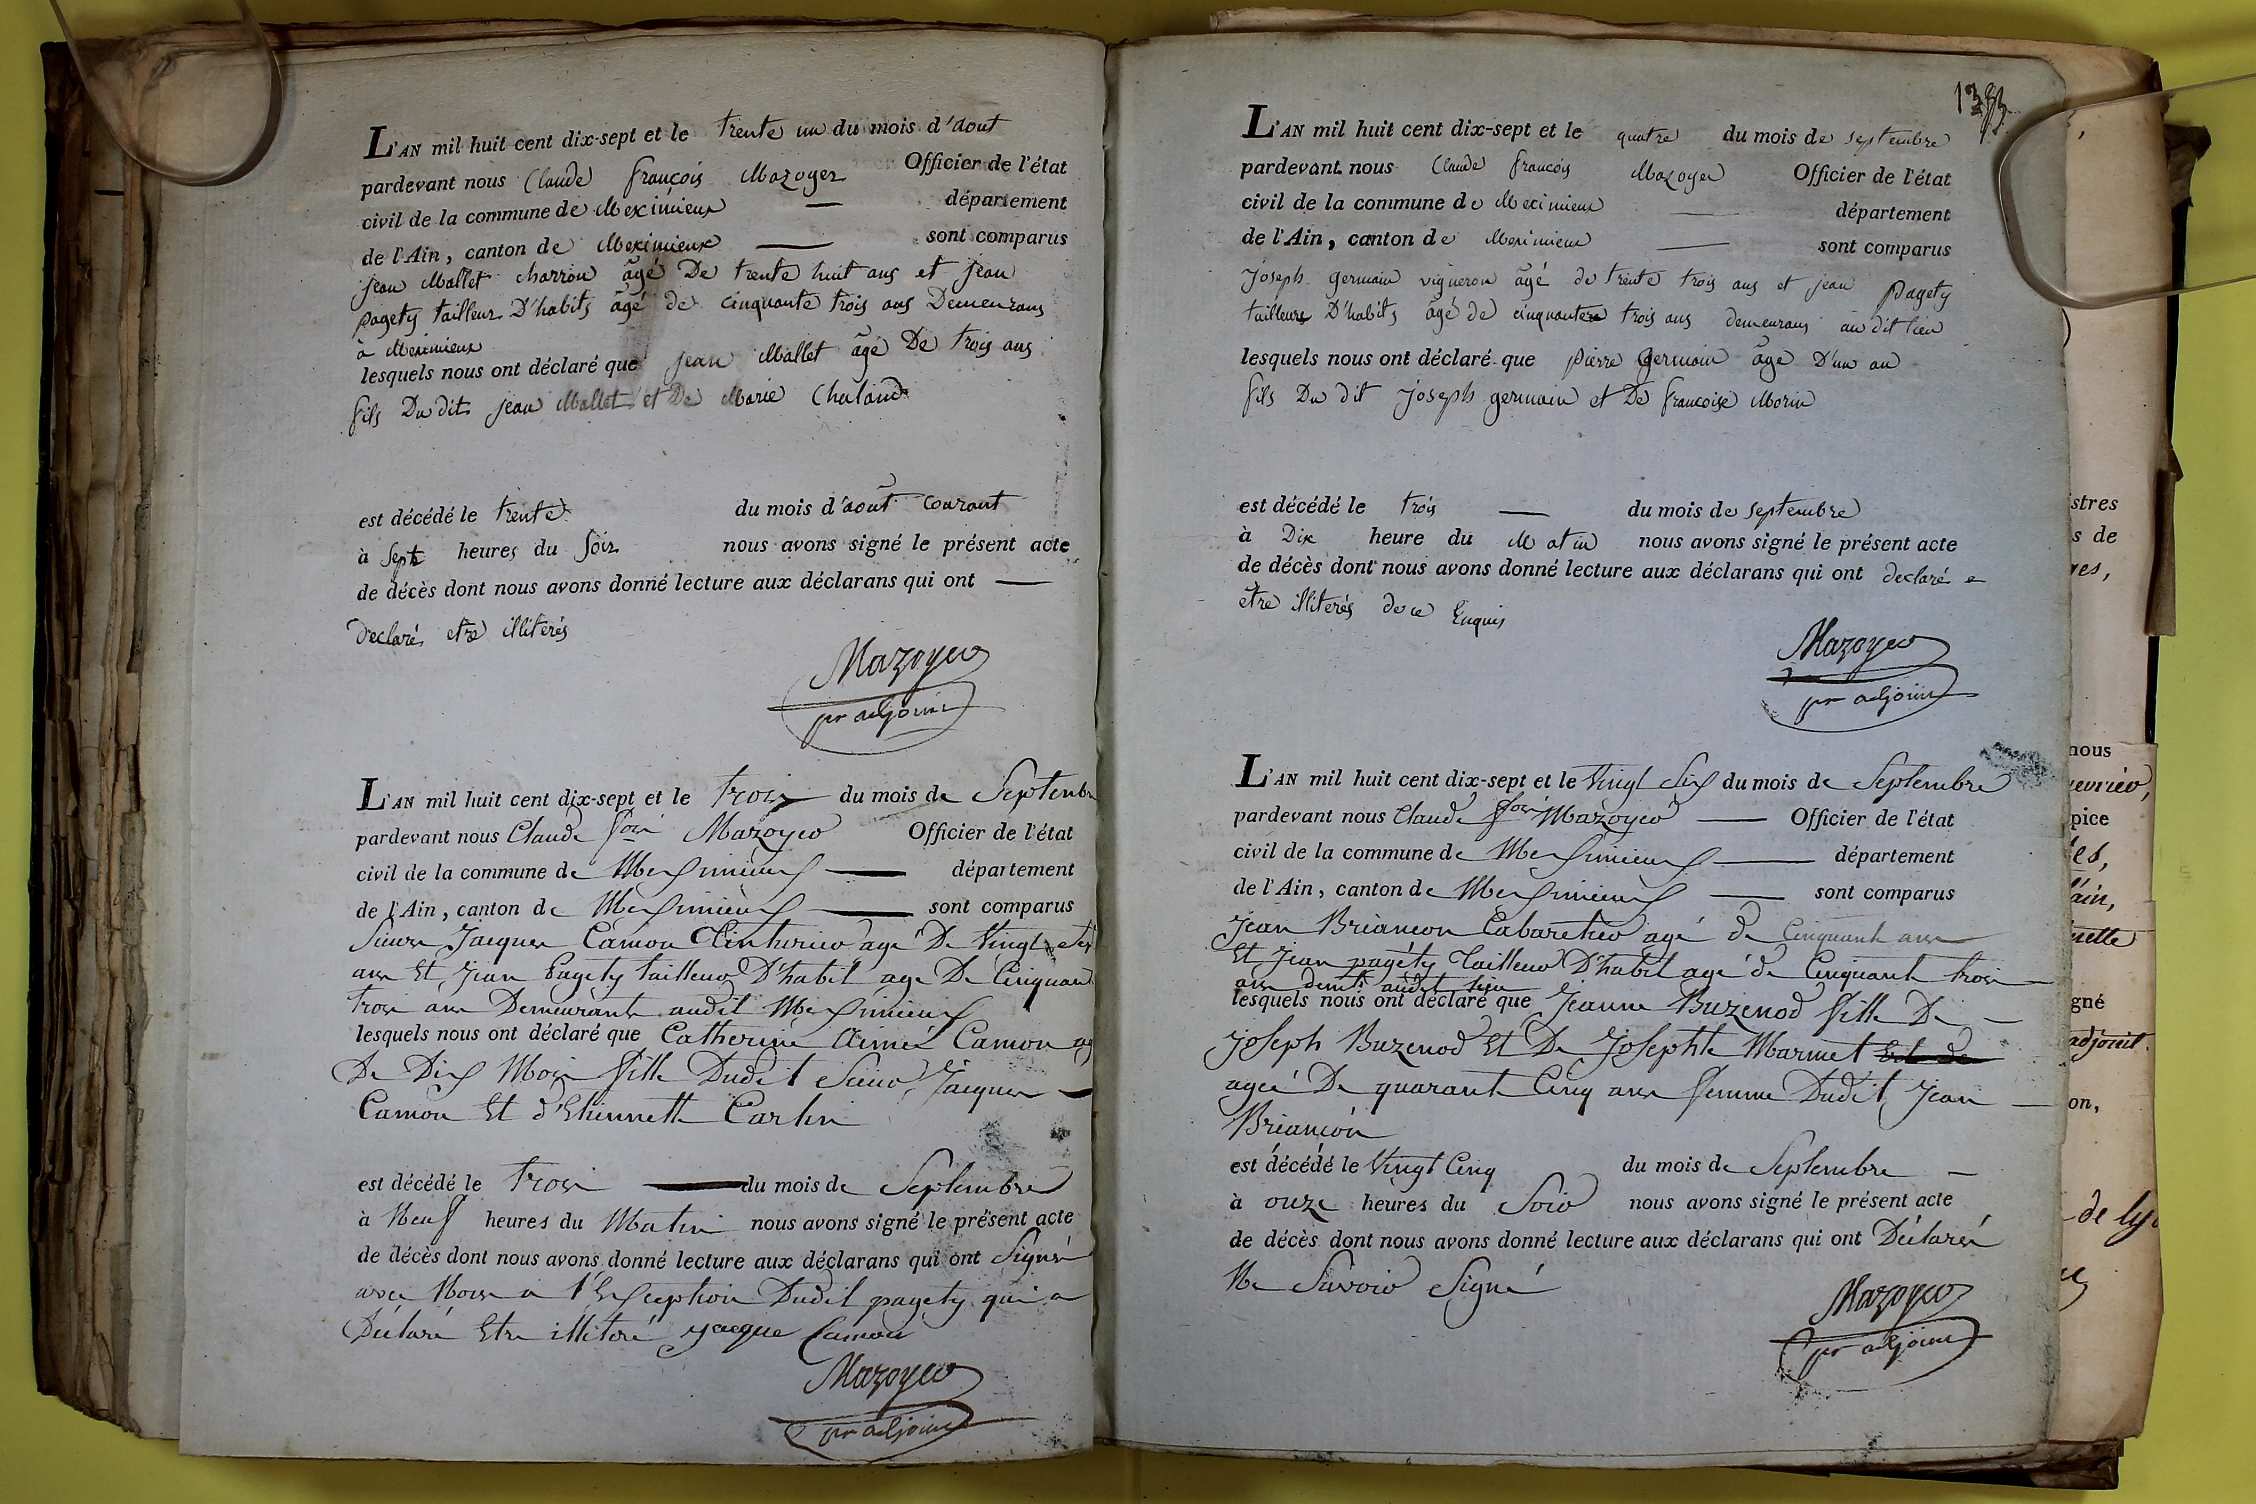 L'AN mil huit cent dix-sept et le trente un du mois d'aout
pardevant nous Claude françois Mazoyer Officier de l'état
civil de la commune de Meximieux — département
de l'Ain, canton de Meximieux — sont comparus
jean Mallet charron âgé De trente huit ans et jean
pagety tailleur D'habits âgé de cinquante trois ans Demeurans
à Meximieux
lesquels nous ont déclaré que jean Mallet âgé De trois ans
fils Du dit jean Mallet et De Marie Chaland
est décédé le trente du mois d'août courant
à Sept heures du Soir nous avons signé le présent acte
de décès dont nous avons donné lecture aux déclarans qui ont —
declaré etre illiterés
Mazoyer
pr adjoint
L'AN mil huit cent dix-sept et le trois du mois de Septembr
pardevant nous Claude fois Mazoyer Officier de l'état
civil de la commune de Meximieux — département
de l'Ain, canton de Meximieux — sont comparus
Sieur Jacques Camou Teinturier agé De Vingt
ans Et Jean Pagety tailleur D'habit agé De Cinquant
trois ans Demeurants audit Meximieux
lesquels nous ont déclaré que Catherine Aimée Camou ag
De Dix Mois fille Dudit Sieur Jacques —
Camou Et d'Etiennette Carlin
est décédé le trois — du mois de Septembre
à Neuf heures du Matin nous avons signé le présent acte
de décès dont nous avons donné lecture aux déclarans qui ont Signé
avec Nous a l'Exception Dudit pagety qui a
Déclaré Etre illitéré jacque Camou
Mazoyer
pr adjoint
L'AN mil huit cent dix-sept et le quatre du mois de septembre
pardevant nous Claude françois Mazoyer Officier de l'état
civil de la commune de Meximieux — département
de l'Ain, canton de Meximieux — sont comparus
joseph germain vigneron âgé de trente trois ans et jean pagety
tailleur D'habits âgé de cinquante trois ans demeurans au dit lieu
lesquels nous ont déclaré que pierre germain âgé D'un an
fils Du dit joseph germain et De francoise Morin
est décédé le trois — du mois de septembre
à Dix heure du Matin nous avons signé le présent acte
de décès dont nous avons donné lecture aux déclarans qui ont declaré
etre illiterés de ce Enquis
Mazoyer
pr adjoint
L'AN mil huit cent dix-sept et le Vingt Six du mois de Septembre
pardevant nous Claude fois Mazoyer — Officier de l'état
civil de la commune de Meximieux — département
de l'Ain, canton de Meximieux — sont comparus
Jean Briancon Cabaretier agé de Cinquant ans
Et Jean pagéty Tailleur D'habit agé de Cinquant trois
ans demts audit lieu
lesquels nous ont déclaré que Jeanne Buzenod fille De —
Joseph Buzenod Et De Josephte Marmet
ageé De quarant Cinq ans femme Dudit Jean —
Briancon
est décédé le Vingt Cinq du mois de Septembre —
à onze heures du Soir nous avons signé le présent acte
de décès dont nous avons donné lecture aux déclarans qui ont Déclaré
Ne Savoir Signé
Mazoyer
pr adjoint
stres
s de
res,
nous
pice
gné
adjoint
on,
de ly